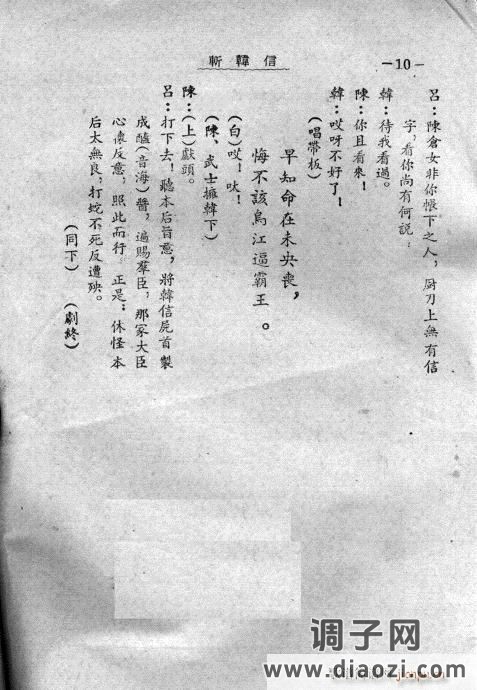 斬韓信
—10—
呂：陳倉女非你帳下之人，厨刀上無有信
字，看你尚有何說：
韓：待我看過。
陳：你且看來！
韓：哎呀不好了！
（唱帶板）
早知命在未央喪，
悔不該烏江逼霸王。
（白）哎！吠！
（陳、武士擁韓下）
陳：（上）獻頭。
呂：打下去！聽本后旨意，將韓信屍首製
成醢（音海）醬，遍賜羣臣，那家大臣
心懷反意，照此而行。正是：休怪本
后太無良，打蛇不死反遭殃。
（同下）（劇終）
调子网
www.diaozi.com